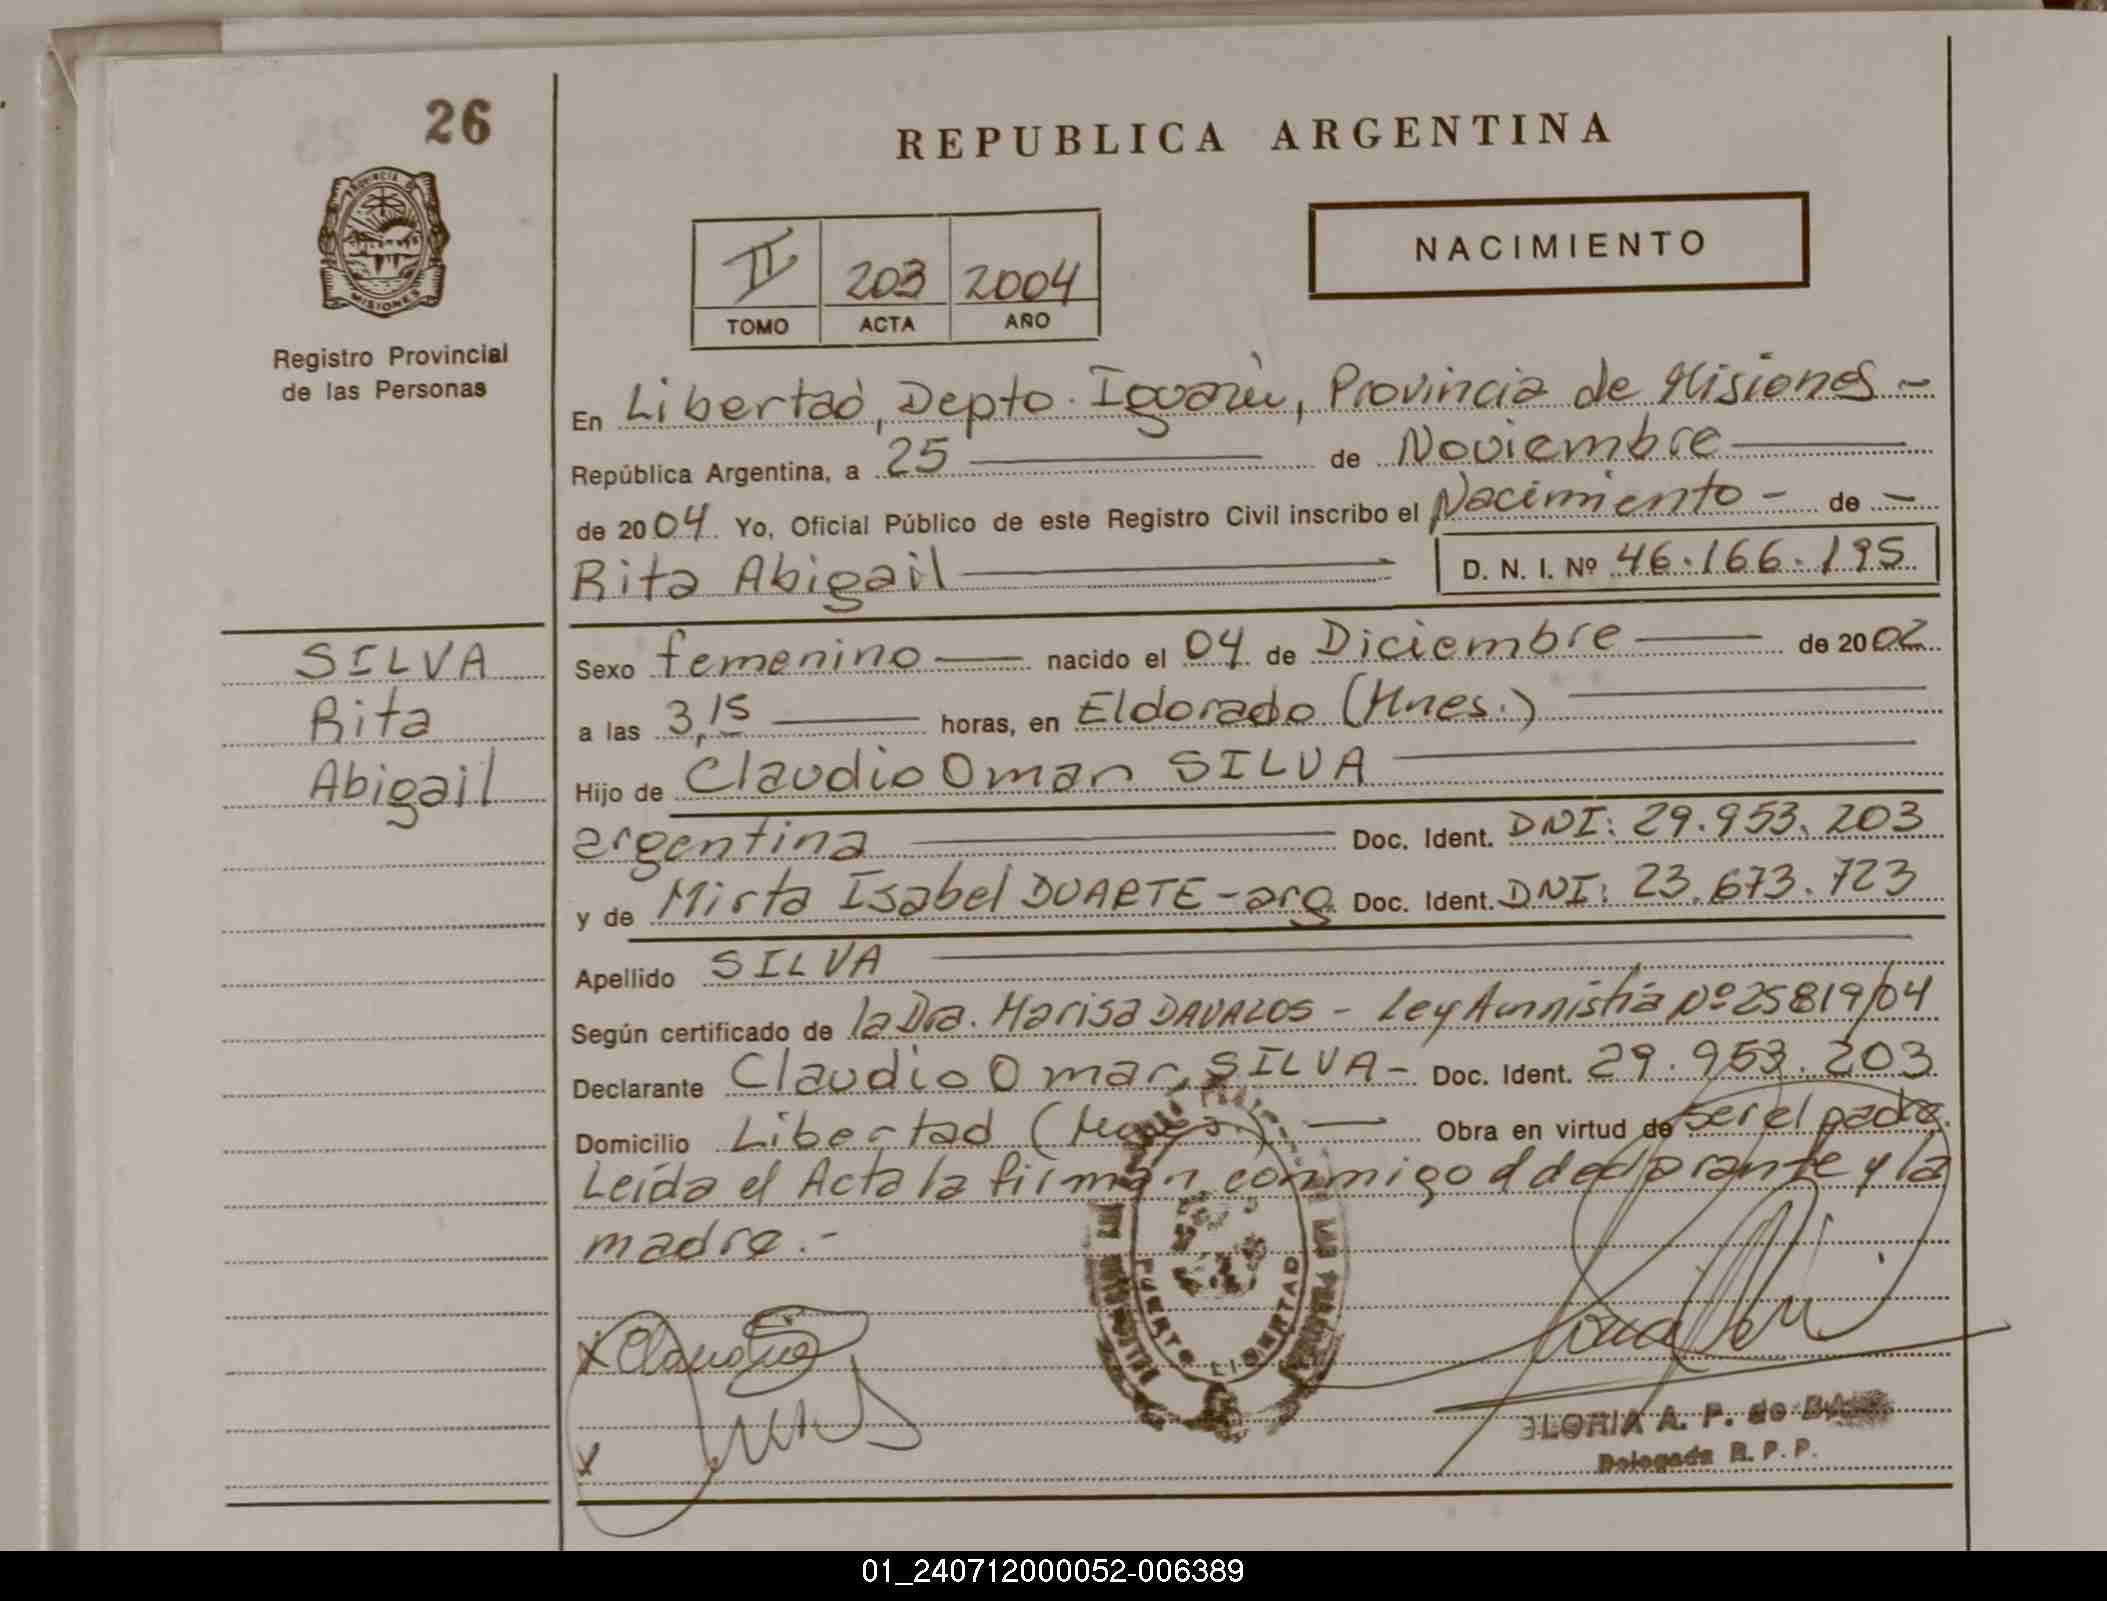 26
REPUBLICA ARGENTINA
PROVINCIA DE
MISIONES
Registro Provincial
de las Personas
II 203 2004
TOMO ACTA AÑO
NACIMIENTO
En Libertad, Depto. Iguazú, Provincia de Misiones -
República Argentina, a 25 de Noviembre
de 2004. Yo, Oficial Público de este Registro Civil inscribo el Nacimiento - de -
Rita Abigail D. N. I. Nº 46.166.195
SILVA
Rita
Abigail
Sexo femenino nacido el 04 de Diciembre de 2002
a las 3,15 horas, en Eldorado (Mnes.)
Hijo de Claudio Omar SILVA
argentina Doc. Ident. DNI: 29.953.203
y de Mirta Isabel DUARTE - arg. Doc. Ident. DNI: 23.673.723
Apellido SILVA
Según certificado de la Dra. Marisa DAVALOS - Ley Amnistía Nº 25819/04
Declarante Claudio Omar SILVA - Doc. Ident. 29.953.203
Domicilio Libertad (Mnes.) Obra en virtud de Ser el padre.
Leída el Acta la firman conmigo el declarante y la
madre.-
PUERTO LIBERTAD
A. P. de
Delegada R. P. P.
01_240712000052-006389